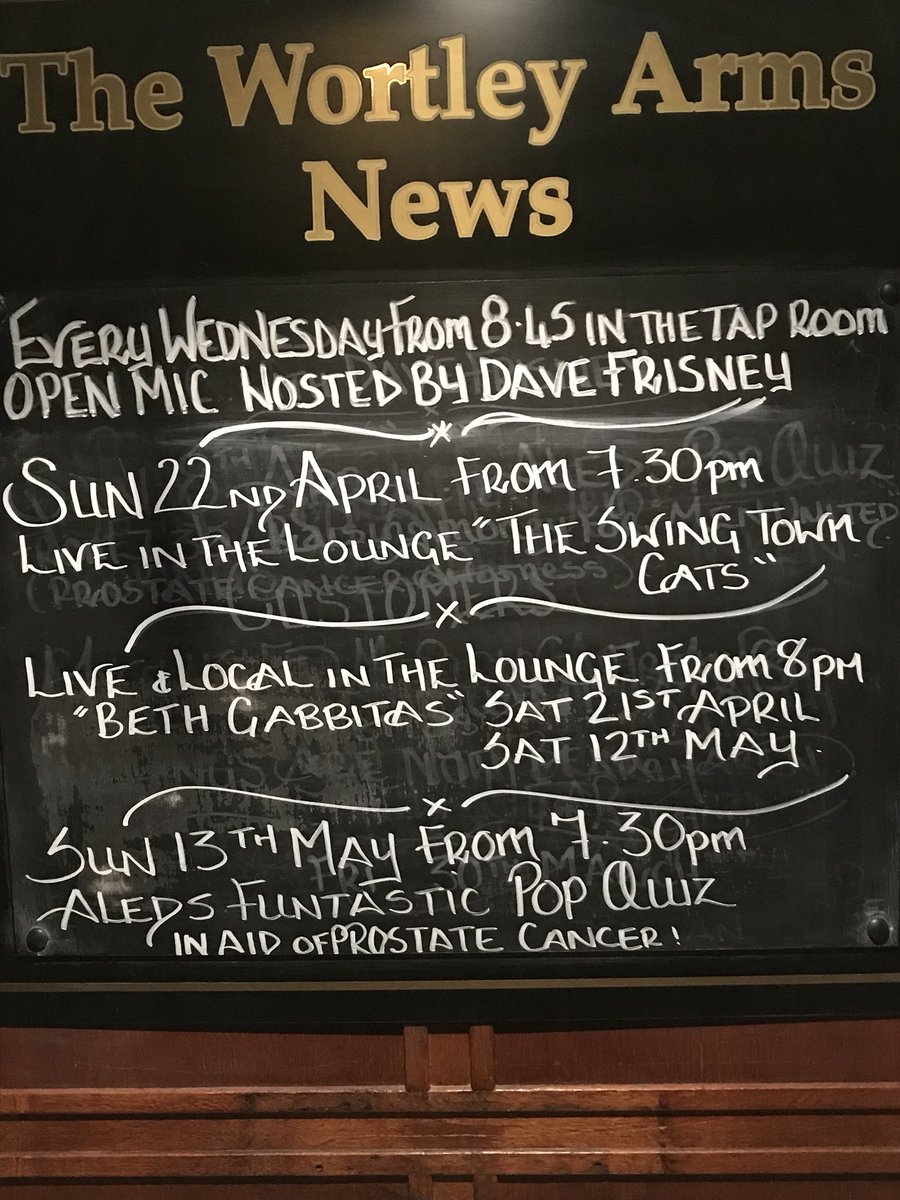 The Wortley Arms
News
EVERY WEDNESDAY FROM 8.45 IN THE TAP ROOM
OPEN MIC HOSTED BY DAVE FRISNEY
SUN 22ND APRIL FROM 7.30pm
LIVE IN THE LOUNGE "THE SWING TOWN
CATS"
LIVE & LOCAL IN THE LOUNGE FROM 8PM
"BETH GABBITAS" SAT 21ST APRIL
SAT 12TH MAY.
SUN 13TH MAY FROM 7.30pm
ALEDS FUNTASTIC POP QUIZ
IN AID OF PROSTATE CANCER!